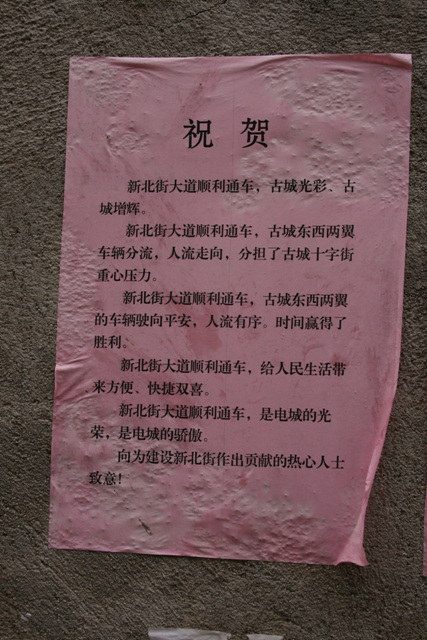 祝 贺
新北街大道顺利通车，古城光彩、古
城增辉。
新北街大道顺利通车，古城东西两翼
车辆分流，人流走向，分担了古城十字街
重心压力。
新北街大道顺利通车，古城东西两翼
的车辆驶向平安，人流有序。时间赢得了
胜利。
新北街大道顺利通车，给人民生活带
来方便、快捷双喜。
新北街大道顺利通车，是电城的光
荣，是电城的骄傲。
向为建设新北街作出贡献的热心人士
致意！